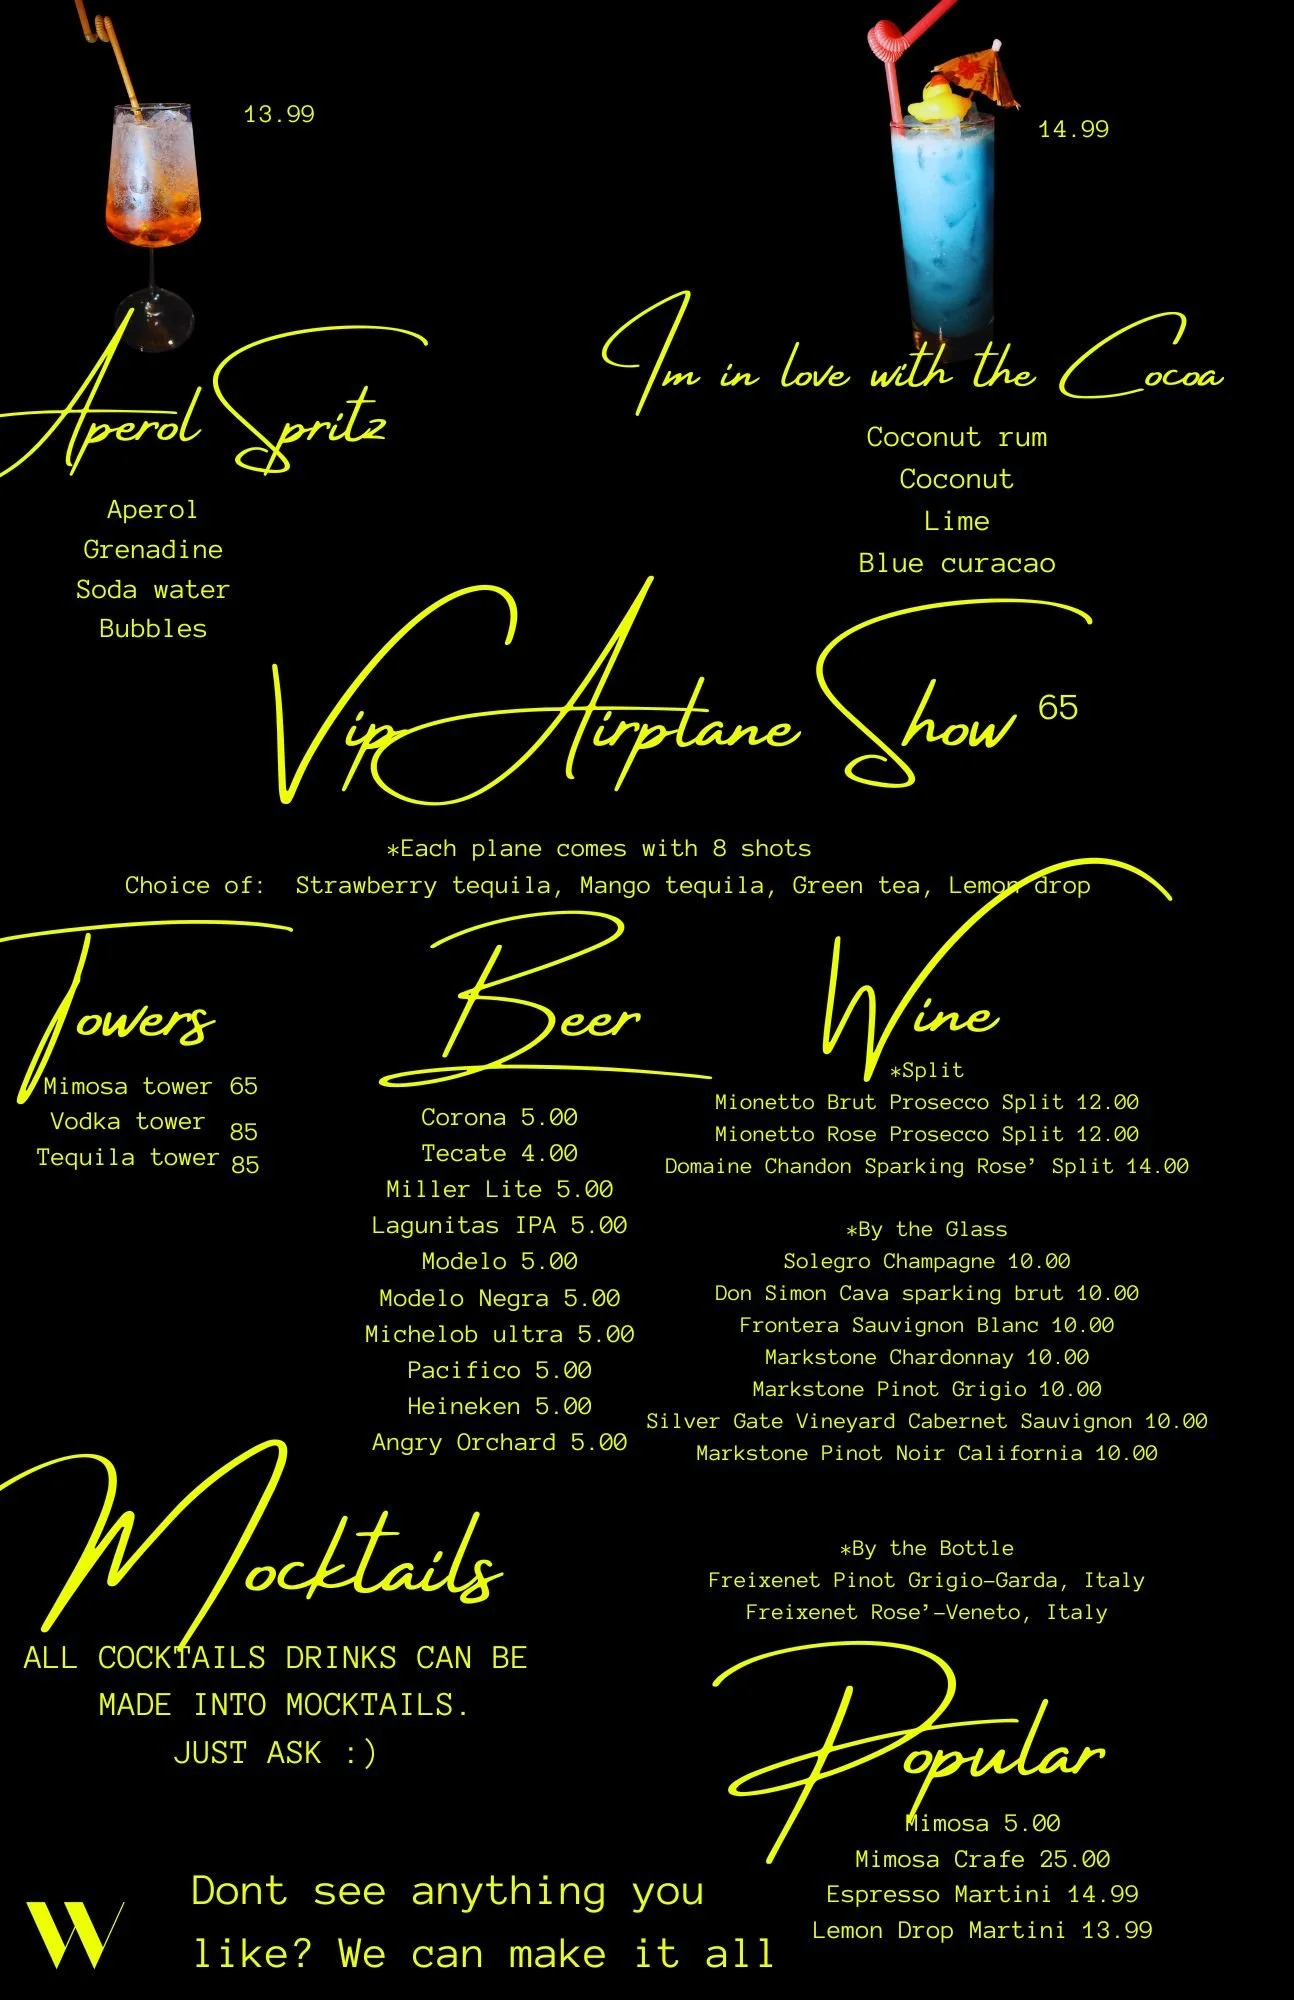 13.99
Aperol Spritz
Aperol
Grenadine
Soda water
Bubbles
14.99
Im in love with the Cocoa
Coconut rum
Coconut
Lime
Blue curacao
Vip Airplane Show 65
*Each plane comes with 8 shots
Choice of: Strawberry tequila, Mango tequila, Green tea, Lemon drop
Towers
Mimosa tower 65
Vodka tower 85
Tequila tower 85
Beer
Corona 5.00
Tecate 4.00
Miller Lite 5.00
Lagunitas IPA 5.00
Modelo 5.00
Modelo Negra 5.00
Michelob ultra 5.00
Pacifico 5.00
Heineken 5.00
Angry Orchard 5.00
Wine
*Split
Mionetto Brut Prosecco Split 12.00
Mionetto Rose Prosecco Split 12.00
Domaine Chandon Sparking Rose’ Split 14.00
*By the Glass
Solegro Champagne 10.00
Don Simon Cava sparking brut 10.00
Frontera Sauvignon Blanc 10.00
Markstone Chardonnay 10.00
Markstone Pinot Grigio 10.00
Silver Gate Vineyard Cabernet Sauvignon 10.00
Markstone Pinot Noir California 10.00
*By the Bottle
Freixenet Pinot Grigio-Garda, Italy
Freixenet Rose’-Veneto, Italy
Mocktails
ALL COCKTAILS DRINKS CAN BE
MADE INTO MOCKTAILS.
JUST ASK :)
Popular
Mimosa 5.00
Mimosa Crafe 25.00
Espresso Martini 14.99
Lemon Drop Martini 13.99
W
Dont see anything you
like? We can make it all